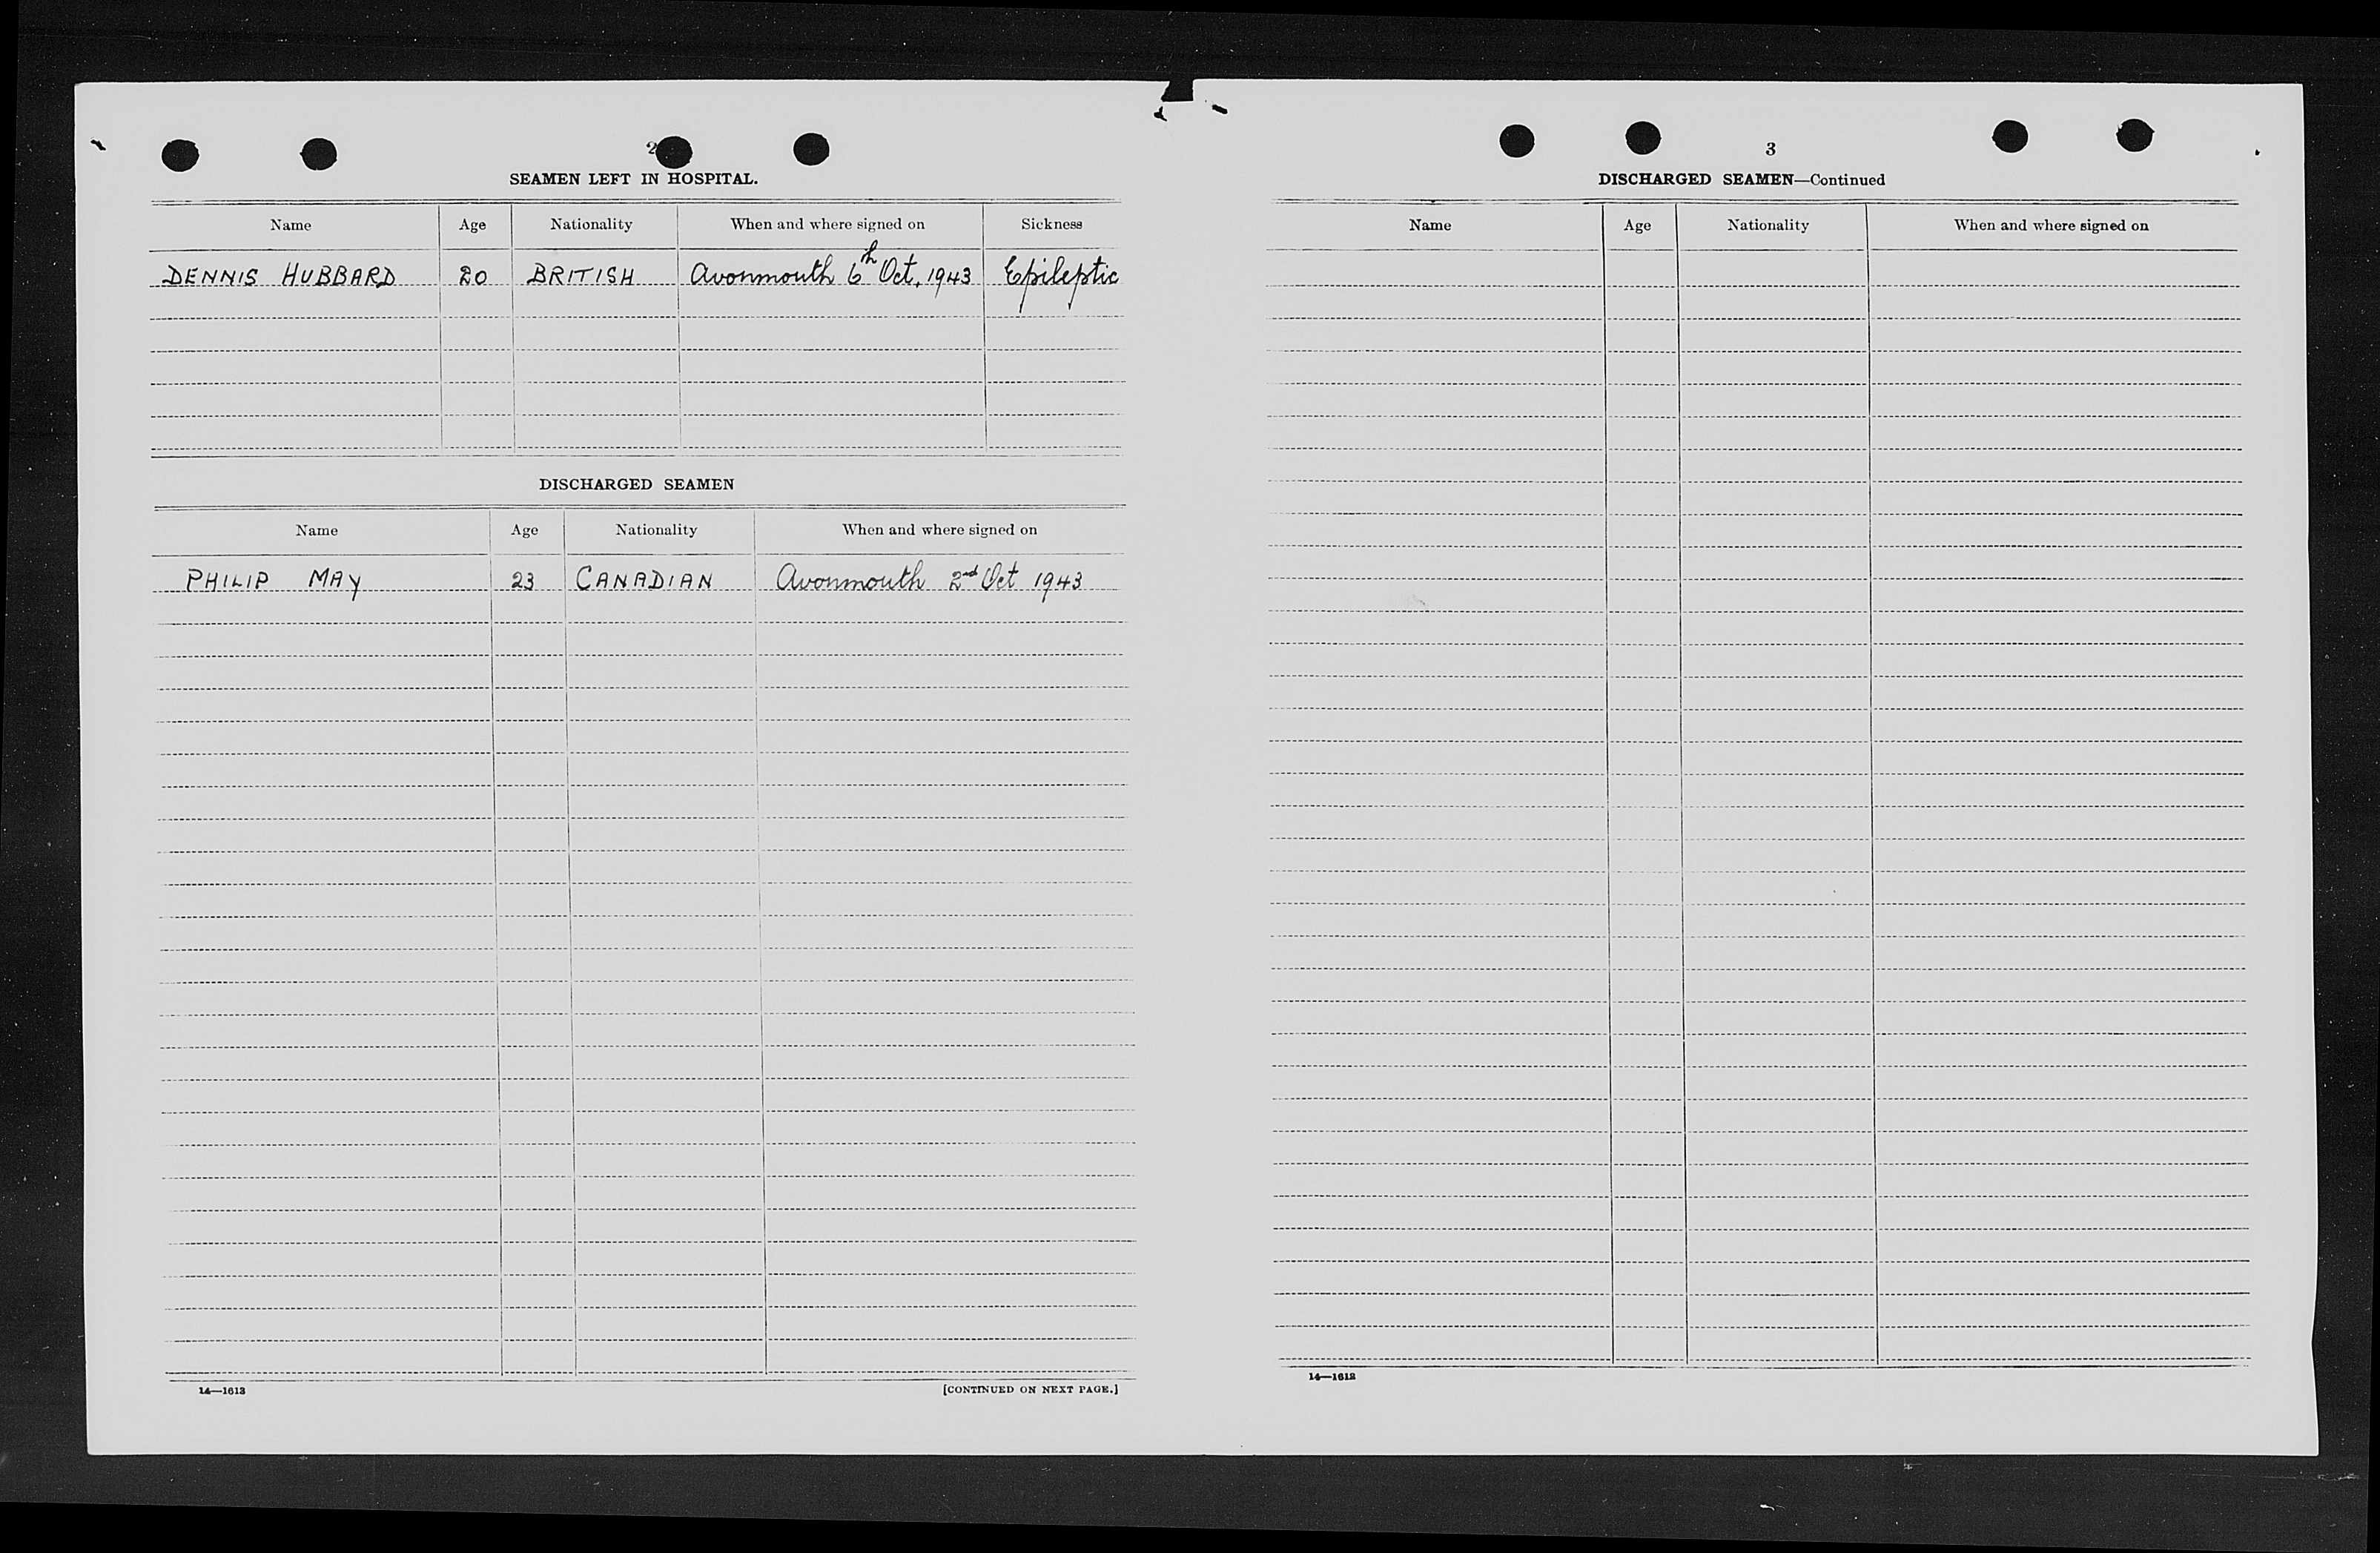 2
SEAMEN LEFT IN HOSPITAL.
Name Age Nationality When and where signed on Sickness
DENNIS HUBBARD 20 BRITISH Avonmouth 6th Oct. 1943 Epileptic
DISCHARGED SEAMEN
Name Age Nationality When and where signed on
PHILIP MAY 23 CANADIAN Avonmouth 2nd Oct 1943
14—1613
[CONTINUED ON NEXT PAGE.]
3
DISCHARGED SEAMEN—Continued
Name Age Nationality When and where signed on
14—1613